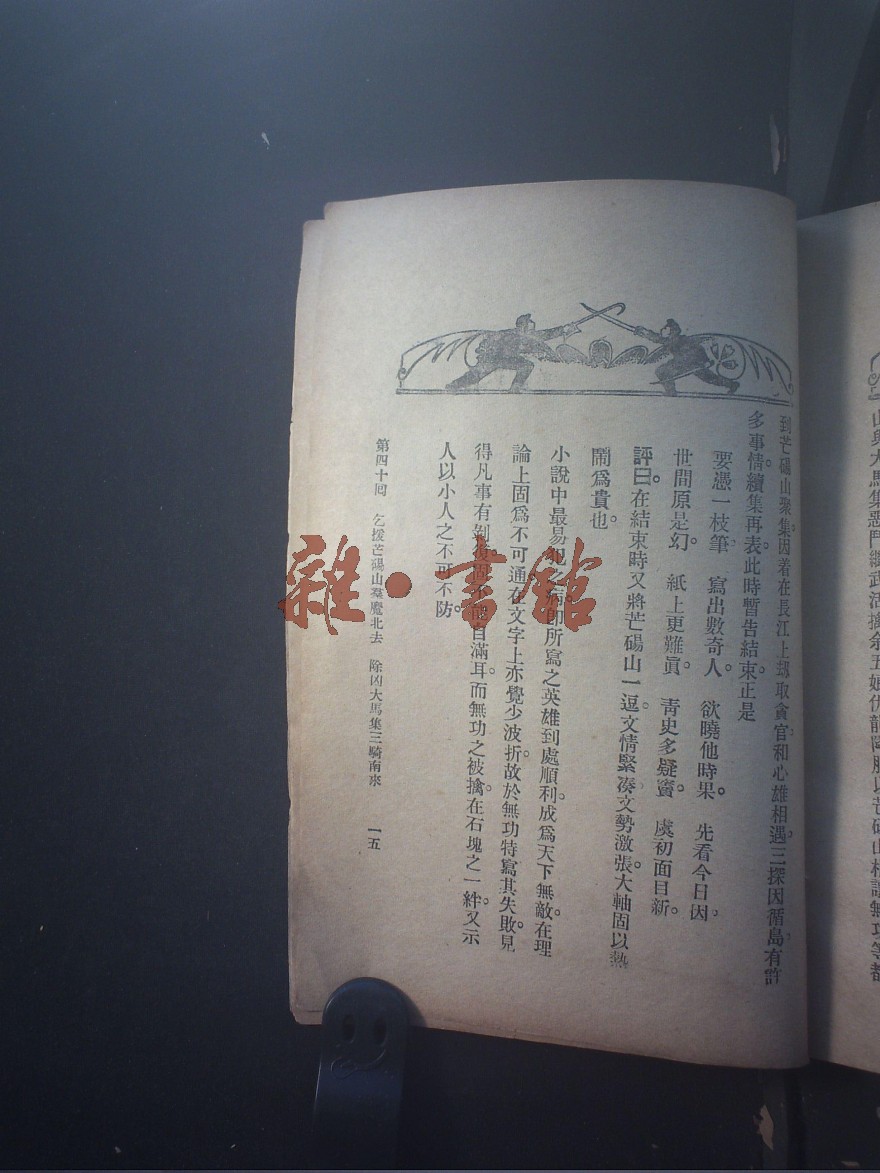 山與大馬集惡鬥繼武活擒余五娘伏龍降服以芒碭山相讓無功等都
到芒碭山聚集因着在長江上刼取貪官和心雄相遇三探因循島有許
多事情續集再表此時暫告結束正是
要憑一枝筆　寫出數奇人。　欲曉他時果。　先看今日因。
世間原是幻。　紙上更難眞　靑史多疑竇。　虞初面目新。
評曰在結束時又將芒碭山一逗。文情緊凑文勢激張。大軸固以熱
鬧爲貴也。
小說中最易犯之病卽所寫之英雄到處順利。成爲天下無敵。在理
論上固爲不可通在文字上亦覺少波折。故於無功特寫其失敗。見
得凡事有剝復固不能自滿耳。而無功之被擒。在石塊之一絆。又示
人以小人之不可不防。
第四十回　乞援芒碭山羣魔北去　除凶大馬集三騎南來　一五
雜·書館